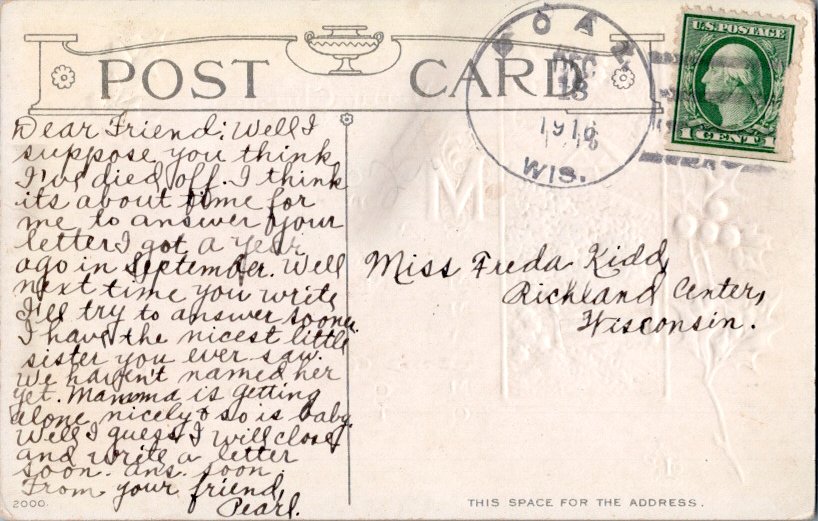 POST CARD
BOAZ
DEC
18
1916
WIS.
U.S. POSTAGE
1 CENT 1
Dear Friend: Well I
suppose you think
I've died off. I think
its about time for
me to answer your
letter I got a year
ago in September. Well
next time you write
I'll try to answer sooner.
I have the nicest little
sister you ever saw.
We haven't named her
yet. Mamma is getting
alone nicely & so is baby.
Well I guess I will close
and write a letter
soon. ans. soon.
From your friend,
Pearl.
Miss Freda Kidd,
Richland Center,
Wisconsin.
M
2000.
THIS SPACE FOR THE ADDRESS.